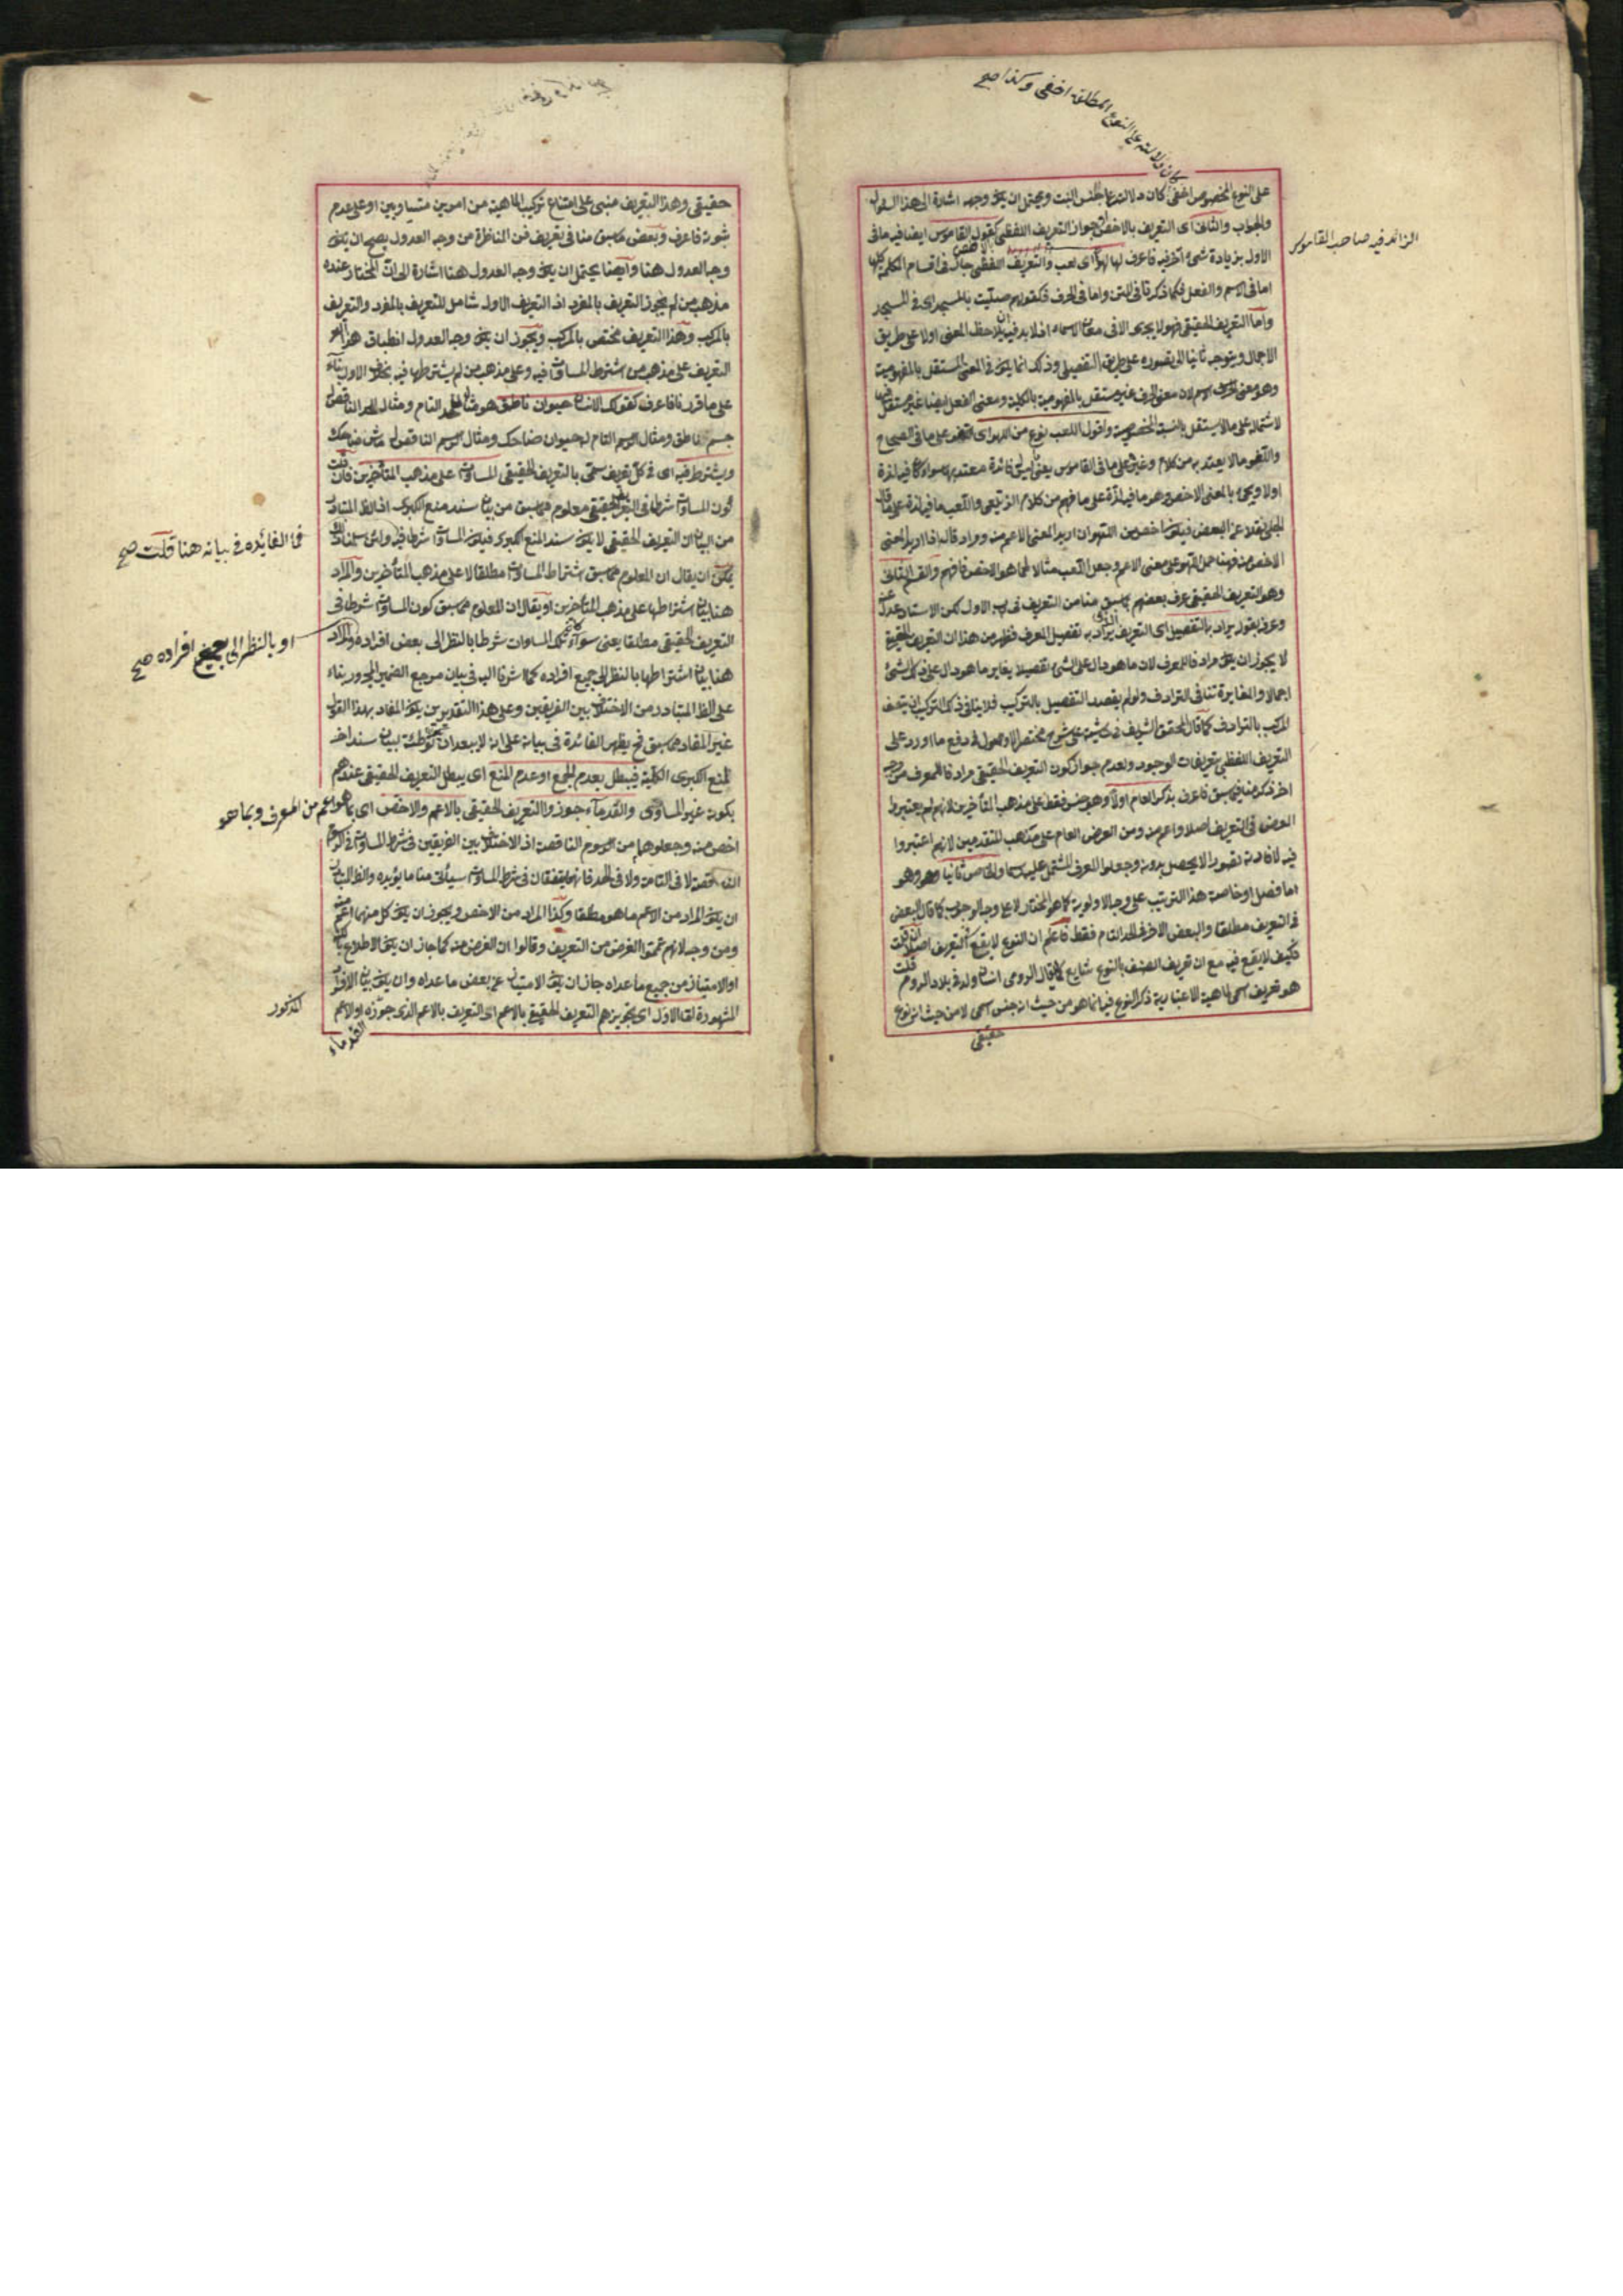 كان دلالته على النوع المطلق اخفى وكذا صح
على النوع المخصوص اخفى كان دلالته على الجنس البتة ويحتمل ان يكون وجهه اشارة الى هذا السؤال
والجواب والثانى اى التعريف بالاخص جواز التعريف اللفظى كقول القاموس ايضا فيه ما فى
الزائد فيه صاحب القاموس
الاول بزيادة شئ آخر فيه فاعرف لها لهوا اى لعب والتعريف اللفظى جاز فى اقسام الكلمة كلها
اما فى الاسم والفعل فكما ذكرنا فى المتن واما فى الحرف فكقولهم صليت بالمسجد اى فى المسجد
واما التعريف الحقيقى فهو لا يجرى الا فى معانى الاسماء اذ لا بد فيه ان يلاحظ المعنى اولا على طريق
الاجمال ويتوجه ثانيا الى تصوره على طريق التفصيل وذلك انما يكون فى المعنى المستقل بالمفهومية
وهو معنى الاسم لان معنى الحرف غير مستقل بالمفهومية بالكلية ومعنى الفعل ايضا غير مستقل فيها
لاشتماله على ما لا يستقل بالنسبة المخصوصة واقول اللعب نوع من اللهو اى على ما فى الصحاح
واللغو ما لا يعتد به من كلام وغيره على ما فى القاموس يعنى ليس فائدة معتد بها سواء كان فيه لذة
اولا ويجئ بالمعنى الاخص وهو ما فيه لذة على ما فهم من كلام الزيلعى واللعب ما فيه لذة على ما قال
الجلبى نقلا عن البعض فيكون اخص من اللهو ان اريد المعنى الاعم منه ومرادفا له اذا اريد المعنى
الاخص منه فههنا حمل اللهو على معنى الاعم وجعل اللعب مثالا لما هو الاخص فافهم والقسم الثانى
وهو التعريف الحقيقى عرف بعضهم بما سبق منا من التعريف فى الاول لكن الاستاد عدل عنه
وعرف بقوله يراد بالتفصيل اى التعريف الذى يراد به تفصيل المعرف فظهر من هذا ان التعريف الحقيقى
لا يجوز ان يكون مرادفا للمعرف لان ما هو دال على الشئ تفصيلا يغاير ما هو دال على ذلك الشئ
اجمالا والمغايرة تنافى الترادف ولو لم يقصد التفصيل بالتركيب فلا ينافى ذلك التركيب ان يتصف
المركب بالترادف كما قال المحقق الشريف فى حاشيته على شرح مختصر الاصول فى دفع ما اورد على
التعريف اللفظى بتعريفات الوجود ولعدم جواز كون التعريف الحقيقى مرادفا للمعرف من وجه
اخر ذكر منا فيما سبق فاعرف بذكر العام اولا وهو جنس فقط على مذهب المتأخرين لانهم لم يعتبروا
العرض فى التعريف اصلا واعم منه ومن العرض العام على مذهب المتقدمين لانهم اعتبروا
فيه لافادته تصورا لا يحصل بدونه وجعلوا المعرف المشتمل عليه رسما والخاص ثانيا وهو
اما فصل او خاصة هذا الترتيب على وجه الاولوية كما هو المختار لا على وجه الوجوب كما قال البعض
فى التعريف مطلقا والبعض الاخر فى الحد التام فقط فاعلم ان النوع لا يقع فى التعريف اصلا فان قلت
فكيف لا يقع فيه مع ان تعريف الصنف بالنوع شايع كما يقال الرومى انسان ولد فى بلاد الروم قلت
هو تعريف اسمى لماهية الاعتبارية ذكر النوع فيه انما هو من حيث انه جنس اسمى لا من حيث انه نوع
حقيقى
حقيقى وهذا التعريف مبنى على امتناع تركيب الماهية من امرين متساويين او على عدم
ثبوته فاعرف وبعض ما سبق منا فى تعريف فن المناظرة من وجه العدول يصح ان يكون
وجه العدول هنا وايضا يحتمل ان يكون وجه العدول هنا اشارة الى ان المختار عنده
مذهب من لم يجوز التعريف بالمفرد اذ التعريف الاول شامل للتعريف بالمفرد والتعريف
بالمركب وهذا التعريف مختص بالمركب ويجوز ان يكون وجه العدول انطباق هذا
التعريف على مذهب من اشترط المساواة فيه وعلى مذهب من لم يشترطها فيه بخلاف الاول بناء
على ما قررنا فاعرف كقولك الانسان حيوان ناطق هو مثال للحد التام ومثال الحد الناقص
جسم ناطق ومثال الرسم التام له حيوان ضاحك ومثال الرسم الناقص له ماش ضاحك
ويشترط فيه اى فى كل تعريف سمى بالتعريف الحقيقى المساواة على مذهب المتأخرين فان قلت
كون المساواة شرطا فى التعريف الحقيقى معلوم مما سبق من بيان سند منع الكبرى اذ الظاهر المتبادر
من البيان ان التعريف الحقيقى لا يكون سند المنع الكبرى فيكون المساواة شرطا فيه
فما الفائدة فى بيانه هنا قلت صح
يمكن ان يقال ان المعلوم مما سبق اشتراط المساواة مطلقا لا على مذهب المتأخرين والمراد
هنا بيان اشتراطها على مذهب المتأخرين او يقال ان المعلوم مما سبق كون المساواة شرطا فى
التعريف الحقيقى مطلقا يعنى سواء كان تلك المساوات شرطا بالنظر الى بعض افراده والمراد
او بالنظر الى جميع افراده صح
هنا بيان اشتراطها بالنظر الى جميع افراده كما اشرنا اليه فى بيان مرجع الضمير المجرور بناء
على الظاهر المتبادر من الاختلاف بين الفريقين وعلى هذا التقديرين يكون المفاد بهذا القول
غير المفاد مما سبق فح يظهر الفائدة فى بيانه على انه لا يبعد ان يكون توطئة لبيان سند اخر
لمنع الكبرى الكلية فيبطل بعدم الجمع او عدم المنع اى يبطل التعريف الحقيقى عندهم
بكونه غير المساوى والقدماء جوزوا التعريف الحقيقى بالاعم والاخص اى بما هو اعم من المعرف وبما هو
اخص منه وجعلوهما من الرسوم الناقصة اذ الاختلاف بين الفريقين فى شرط المساواة فى الرسوم
الناقصة لا فى التامة ولا فى الحد فانهما يتفقان فى شرط المساواة سيأتى منا ما يؤيده والظاهر المتبادر
ان يكون المراد من الاعم ما هو مطلقا وكذا المراد من الاخص ويجوز ان يكون كل منهما اعم منه
ومن وجه لانهم عمموا الغرض من التعريف وقالوا ان الغرض منه كما جاز ان يكون الاطلاع بالكنه
او الامتياز من جميع ما عداه جاز ان يكون الامتياز عن بعض ما عداه وان يكون بيان الافراد
المذكور
المشهورة لقا الاول اى تجويزهم التعريف الحقيقى بالاعم اى التعريف بالاعم الذى جوزه او الاعم
القدماء